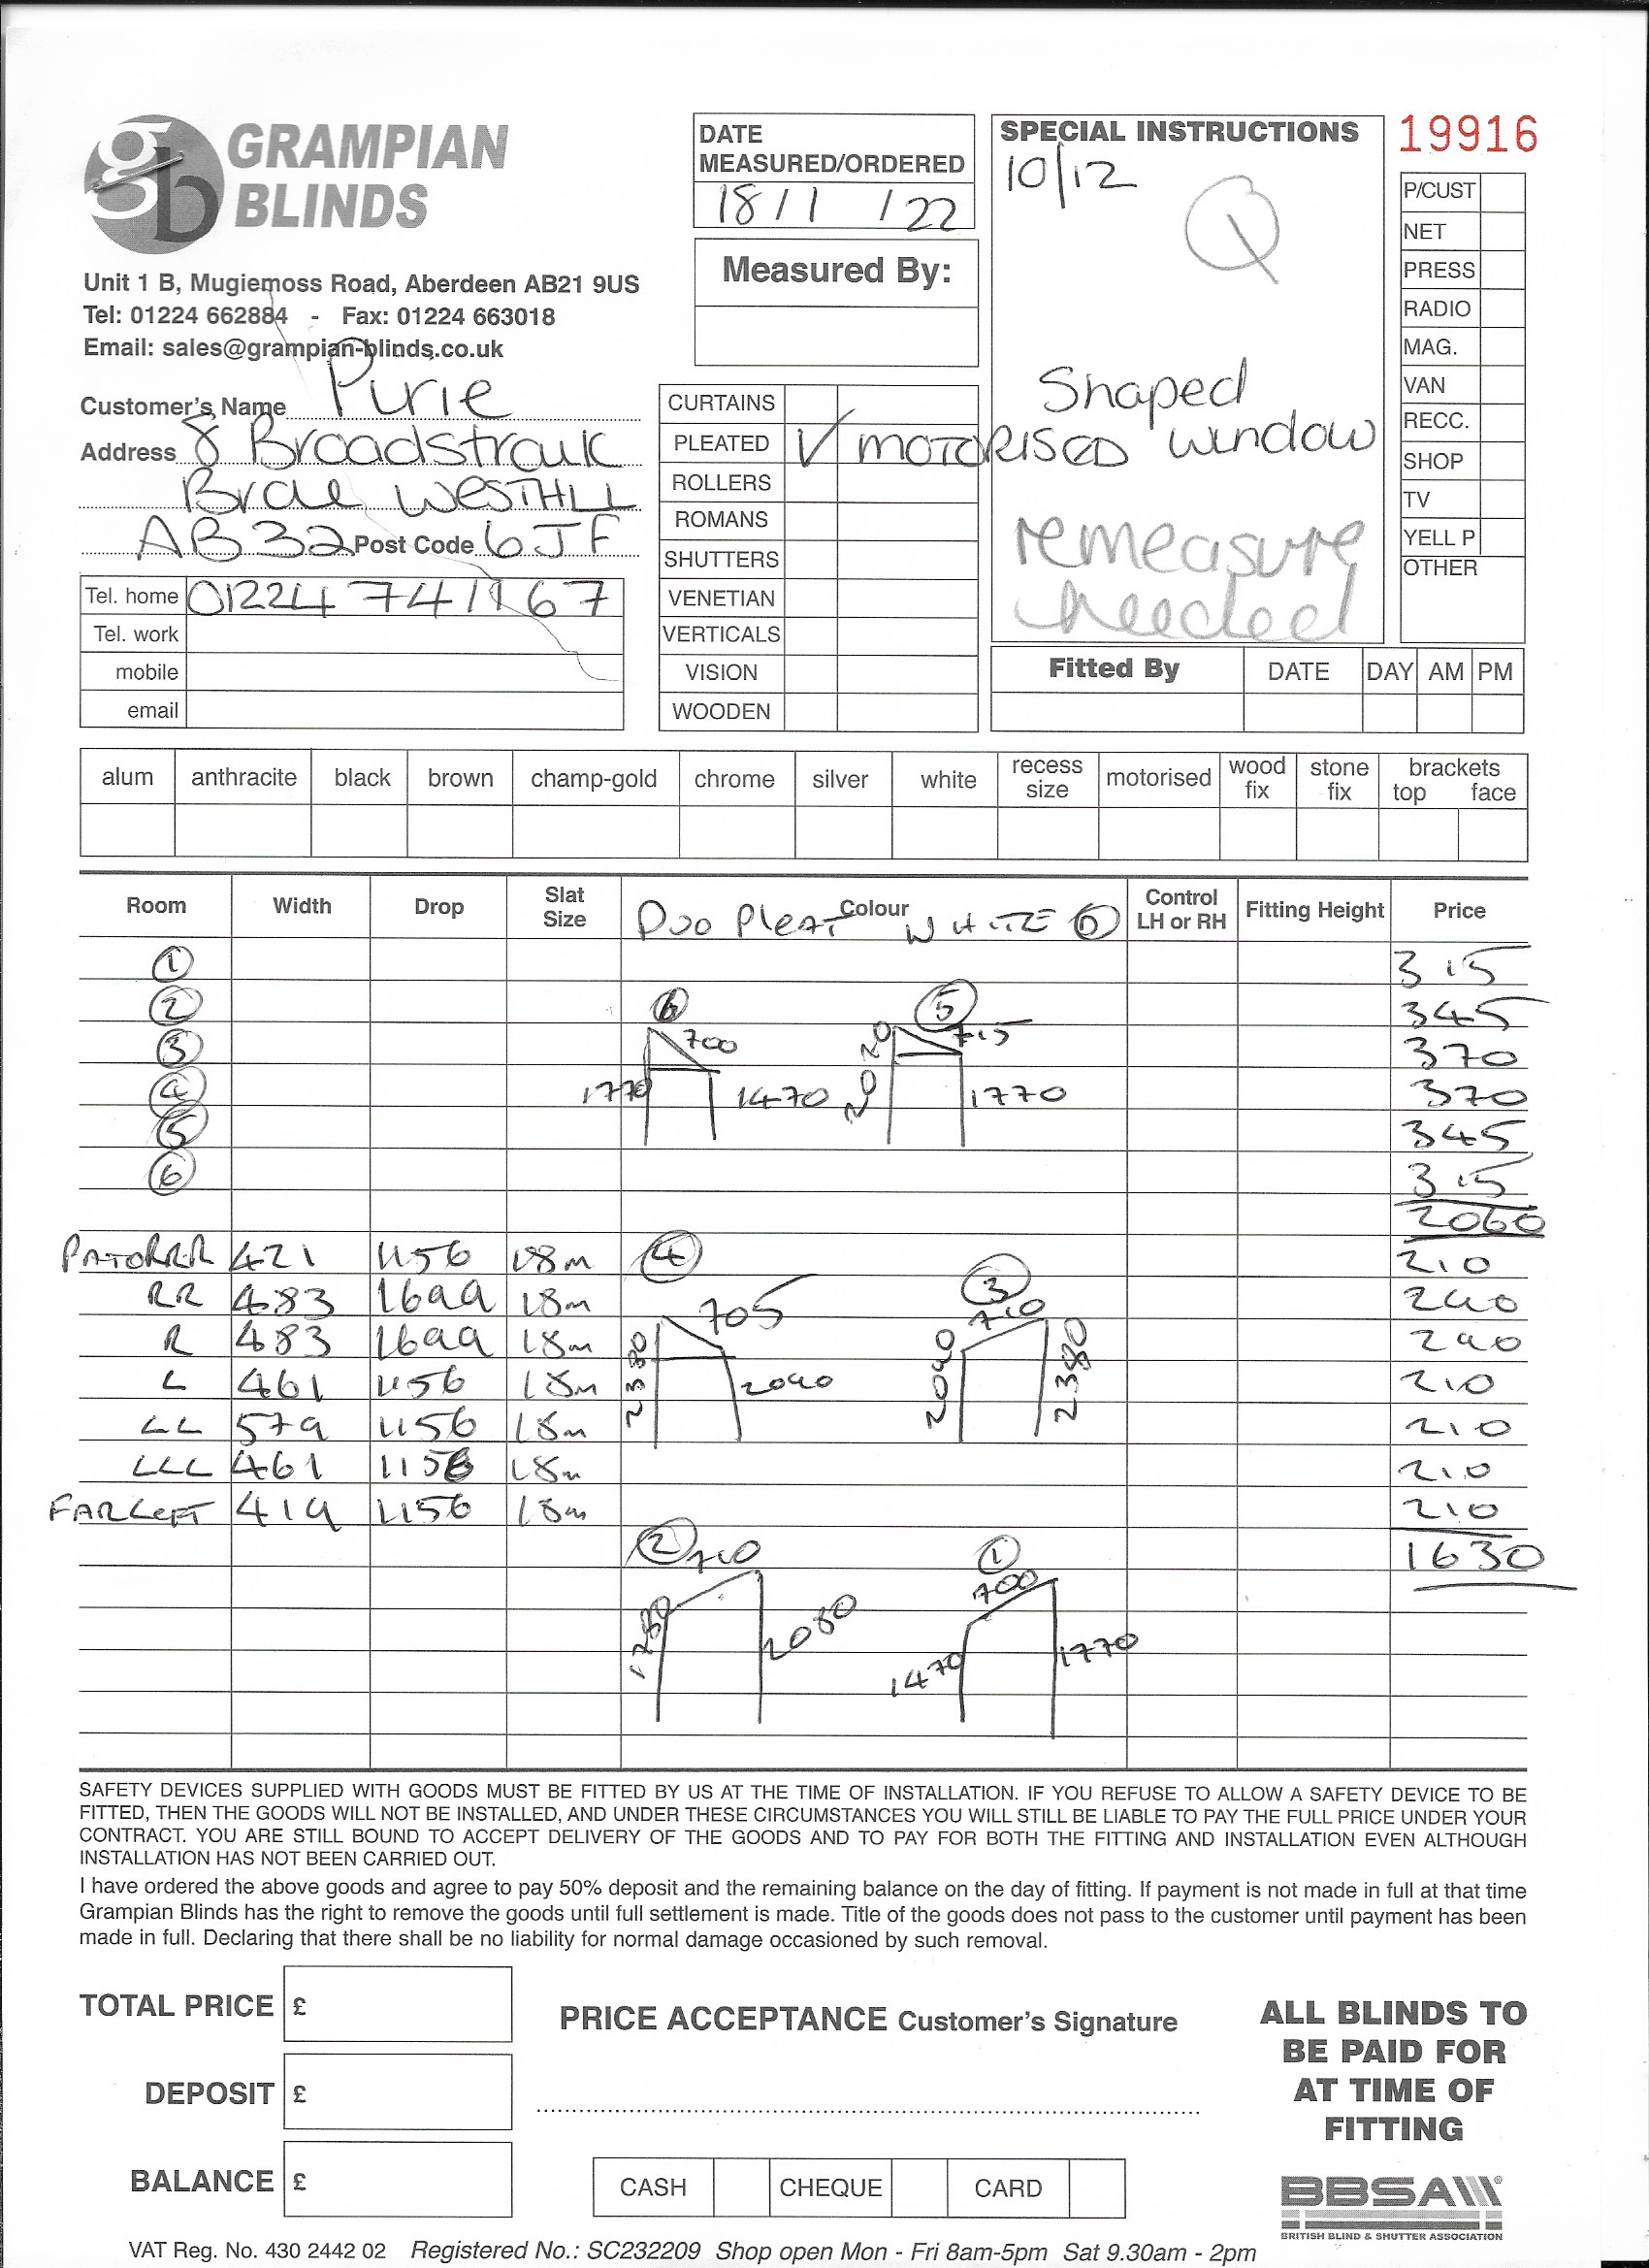 GRAMPIAN
BLINDS
Unit 1 B, Mugiemoss Road, Aberdeen AB21 9US
Tel: 01224 662884 - Fax: 01224 663018
Email: sales@grampian-blinds.co.uk
Customer's Name Pirie
Address 8 Broadstraik
Brae WESTHILL
AB32 Post Code 6JF
Tel. home 01224 741167
Tel. work
mobile
email
DATE
MEASURED/ORDERED
18/1/22
Measured By:
CURTAINS
PLEATED ✓ MOTORISED
ROLLERS
ROMANS
SHUTTERS
VENETIAN
VERTICALS
VISION
WOODEN
SPECIAL INSTRUCTIONS
10/12
Q
Shaped
window
remeasure
needed
19916
P/CUST
NET
PRESS
RADIO
MAG.
VAN
RECC.
SHOP
TV
YELL P
OTHER
Fitted By DATE DAY AM PM
alum anthracite black brown champ-gold chrome silver white recess size motorised wood fix stone fix brackets top face
Room Width Drop Slat Size Colour Control LH or RH Fitting Height Price
DUO PLEAT WHITE 6
1 315
2 345
3 370
4 370
5 345
6 315
2060
6 700 1770 1470
5 715 2020 1770
421 1156 18m 210
RR 483 1699 18m 290
R 483 1699 18m 290
L 461 1156 18m 210
LL 579 1156 18m 210
LLL 461 1156 18m 210
FAR LEFT 419 1156 18m 210
1630
4 705 2380 2090
3 710 2090 2380
2 710 2080
1 700 1470 1770
SAFETY DEVICES SUPPLIED WITH GOODS MUST BE FITTED BY US AT THE TIME OF INSTALLATION. IF YOU REFUSE TO ALLOW A SAFETY DEVICE TO BE
FITTED, THEN THE GOODS WILL NOT BE INSTALLED, AND UNDER THESE CIRCUMSTANCES YOU WILL STILL BE LIABLE TO PAY THE FULL PRICE UNDER YOUR
CONTRACT. YOU ARE STILL BOUND TO ACCEPT DELIVERY OF THE GOODS AND TO PAY FOR BOTH THE FITTING AND INSTALLATION EVEN ALTHOUGH
INSTALLATION HAS NOT BEEN CARRIED OUT.
I have ordered the above goods and agree to pay 50% deposit and the remaining balance on the day of fitting. If payment is not made in full at that time
Grampian Blinds has the right to remove the goods until full settlement is made. Title of the goods does not pass to the customer until payment has been
made in full. Declaring that there shall be no liability for normal damage occasioned by such removal.
TOTAL PRICE £
DEPOSIT £
BALANCE £
PRICE ACCEPTANCE Customer's Signature
CASH CHEQUE CARD
ALL BLINDS TO
BE PAID FOR
AT TIME OF
FITTING
BBSA
BRITISH BLIND & SHUTTER ASSOCIATION
VAT Reg. No. 430 2442 02 Registered No.: SC232209 Shop open Mon - Fri 8am-5pm Sat 9.30am - 2pm